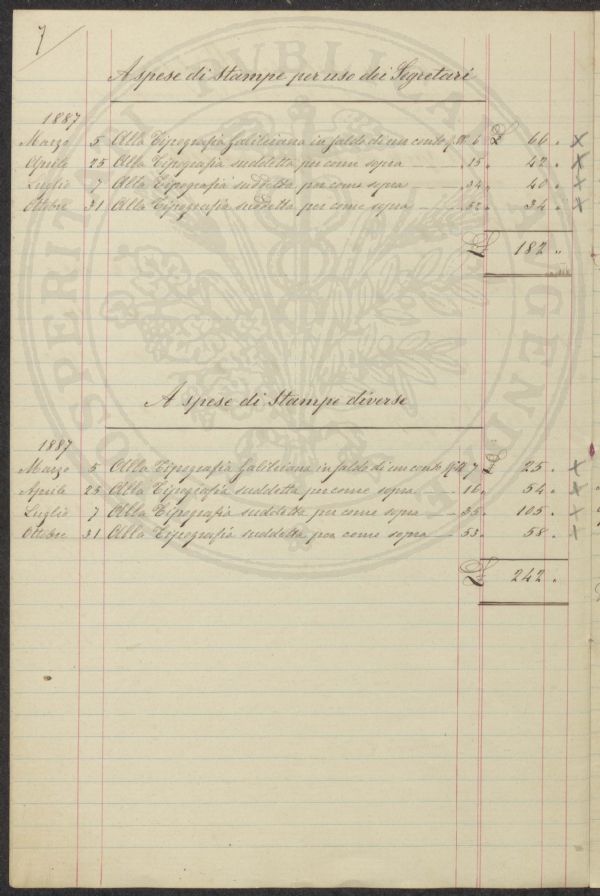 7
A spese di Stampe per uso dei Segretari
1887
Marzo 5 Alla Tipografia Galileiana in saldo di un conto 6 £ 66 . X
Aprile 25 Alla Tipografia suddetta per come sopra 15 . 42 . X
Luglio 7 Alla Tipografia suddetta per come sopra 34 . 40 . X
Ottobre 31 Alla Tipografia suddetta per come sopra 52 . 34 . X
£ 182 .
A spese di Stampe diverse
1887
Marzo 5 Alla Tipografia Galileiana in saldo di un conto 7 £ 25 . X
Aprile 25 Alla Tipografia suddetta per come sopra 16 . 54 . X
Luglio 7 Alla Tipografia suddetta per come sopra 35 . 105 . X
Ottobre 31 Alla Tipografia suddetta per come sopra 53 . 58 . X
£ 242 .
PROSPERITATI PVBLICAE AVGENDAE